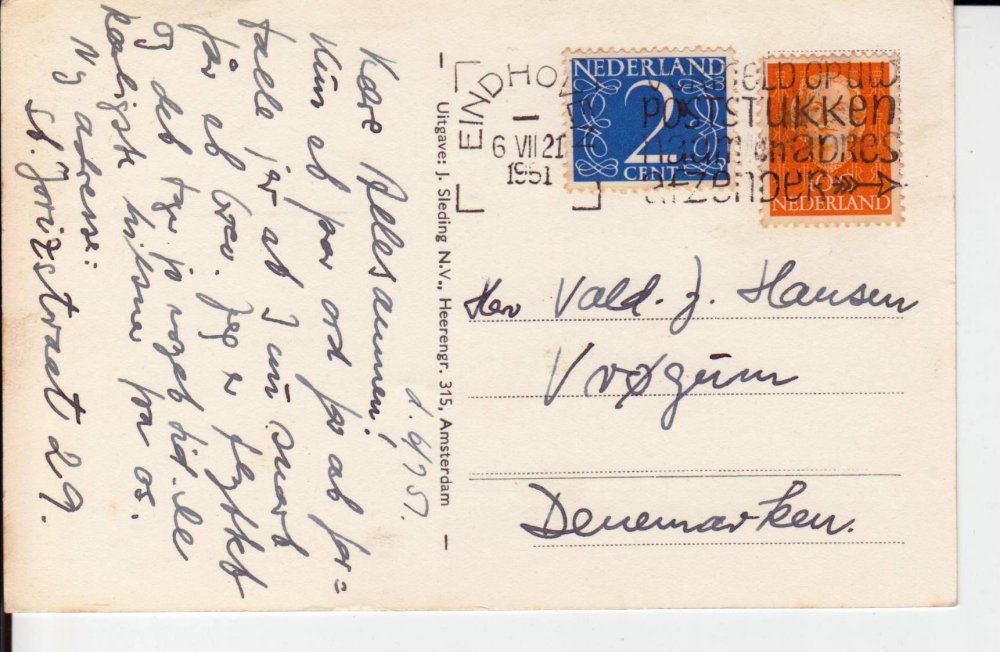 d. 6/7 51.
Kære Allesammen!
Kun et par ord for at for=
tælle jer at I nu snart
får et brev. Jeg er flyttet
og det tager jo noget tid. De
kærligste hilsner fra os.
Ny adresse:
St. Jorisstraat 29.
Uitgave: J. Sleding N.V., Heerengr. 315, Amsterdam
EINDHOVEN
6 VII 21
1951
NEDERLAND
2
CENT
VERMELD OP UW
POSTSTUKKEN
naam en adres
afzender
10
NEDERLAND
Herr Vald. J. Hansen
Vrøgum
Denemarken.